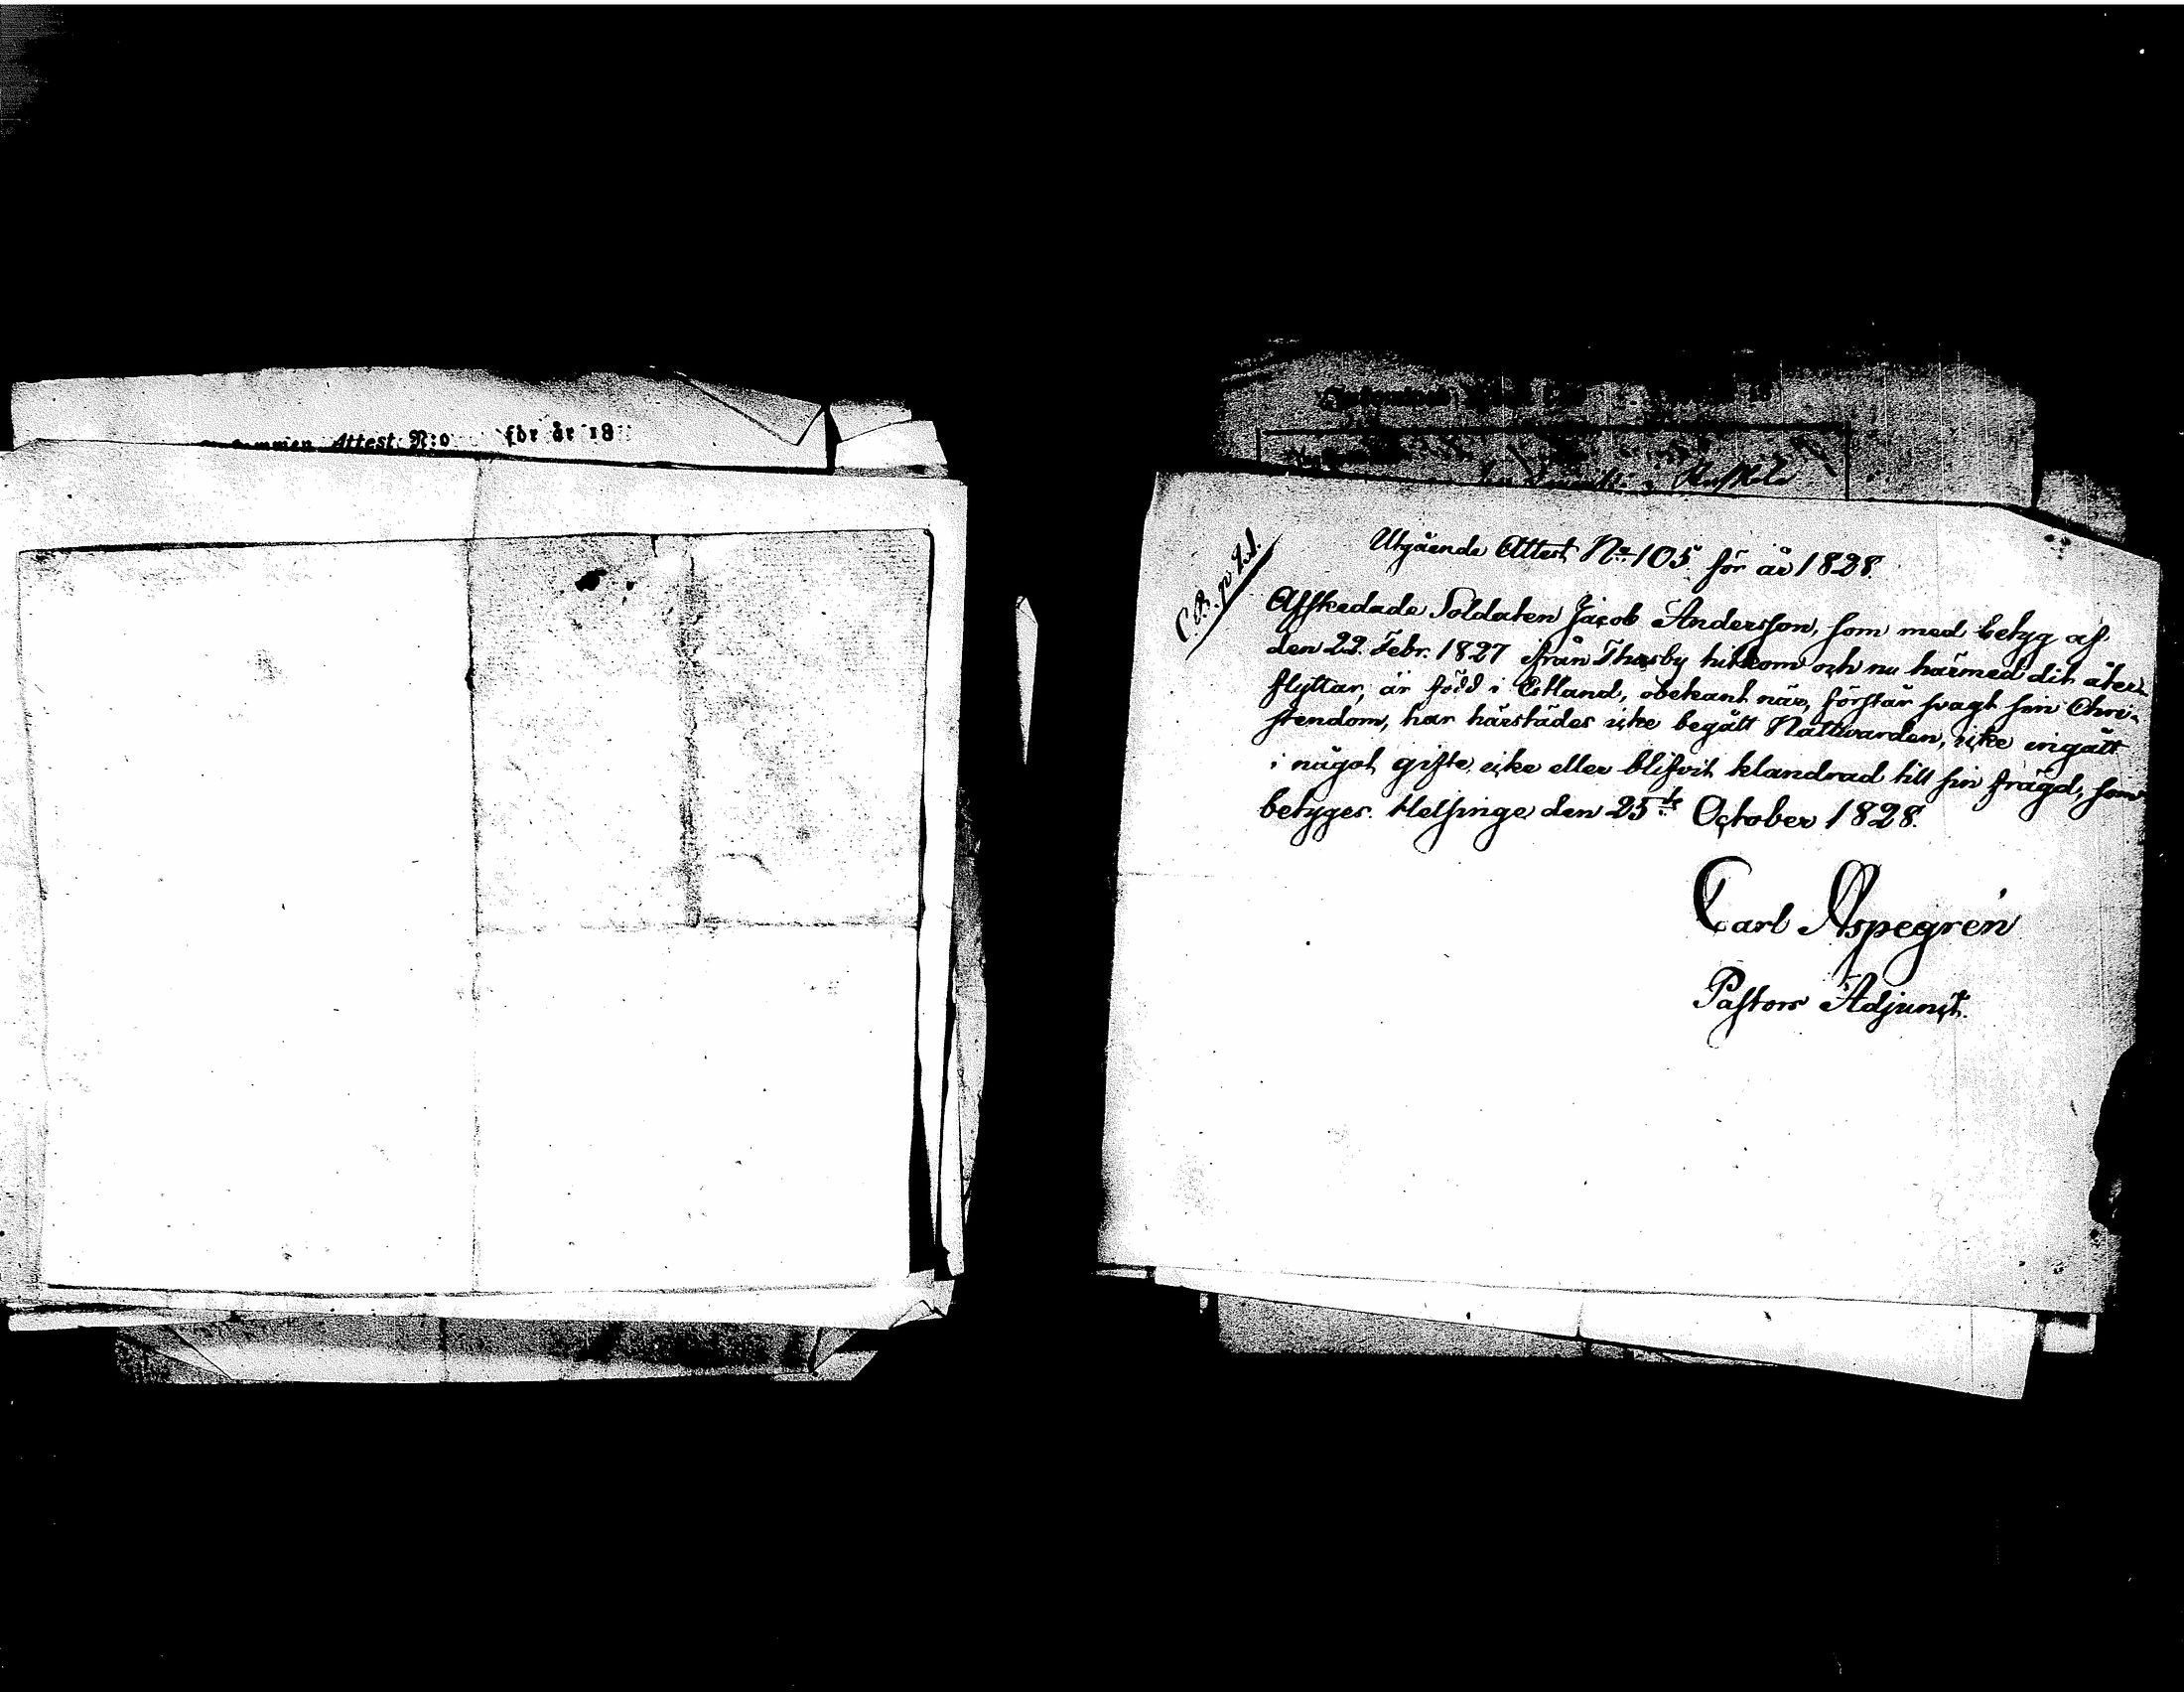 Attest. N:o för år 18
Utgående Attest No 105 för år 1828.
Afskedade Soldaten Jacob Andersson, som med betyg af
den 22. Febr. 1827 från Thusby hitkom och nu härmed dit åter-
flyttar, är född i Estland, obekant när, förstår svagt sin Chri-
stendom, har härstädes icke begått Nattvarden, icke ingått
i något gifte, icke eller blifvit klandrad till sin frägd, som
betyges. Helsinge den 25te October 1828.
Carl Aspegren
Pastors Adjunct.